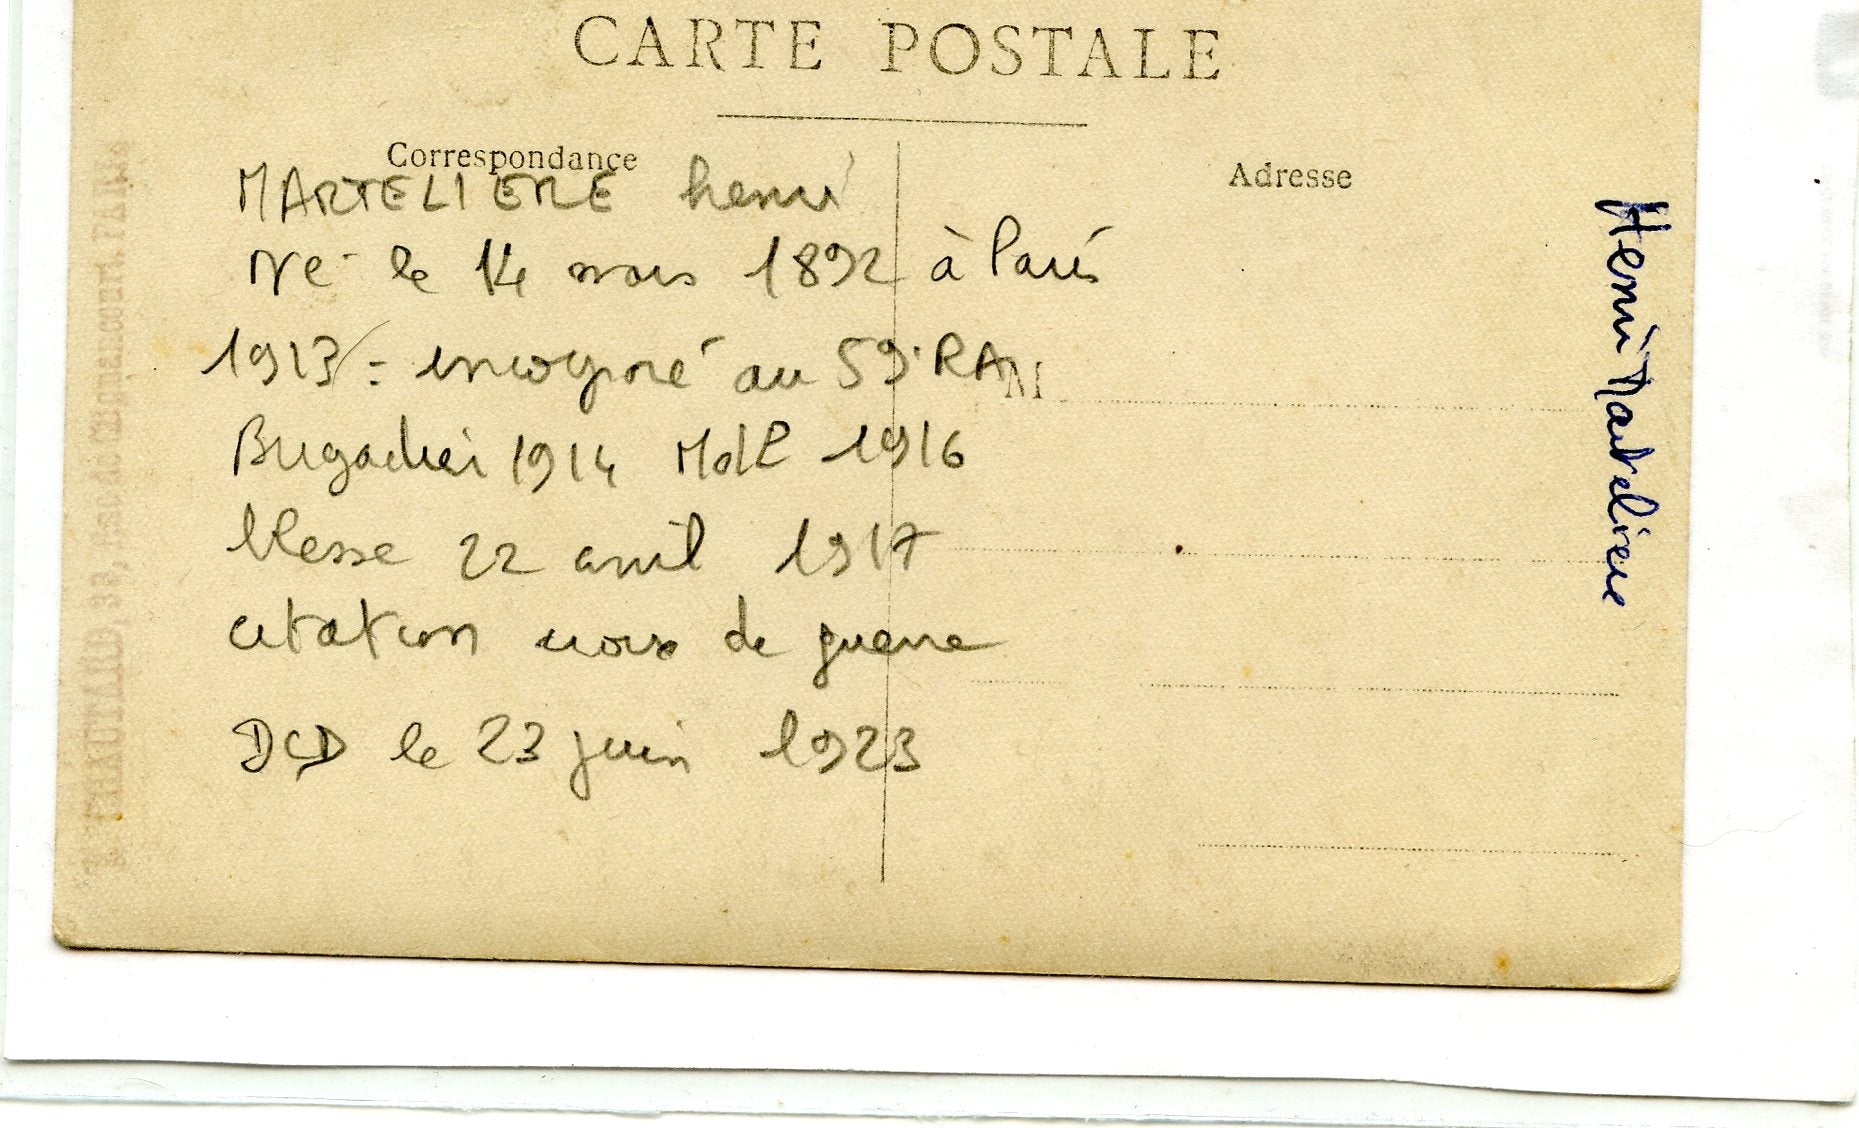 CARTE POSTALE
Correspondance
Adresse
MARTELIERE henri
Né le 14 mars 1892 à Paris
1913 = incorporé au 59. RA
M
Brigadier 1914 MdL 1916
blesse 22 avril 1917
citation croix de guerre
DCD le 23 juin 1923
Henri Martelière